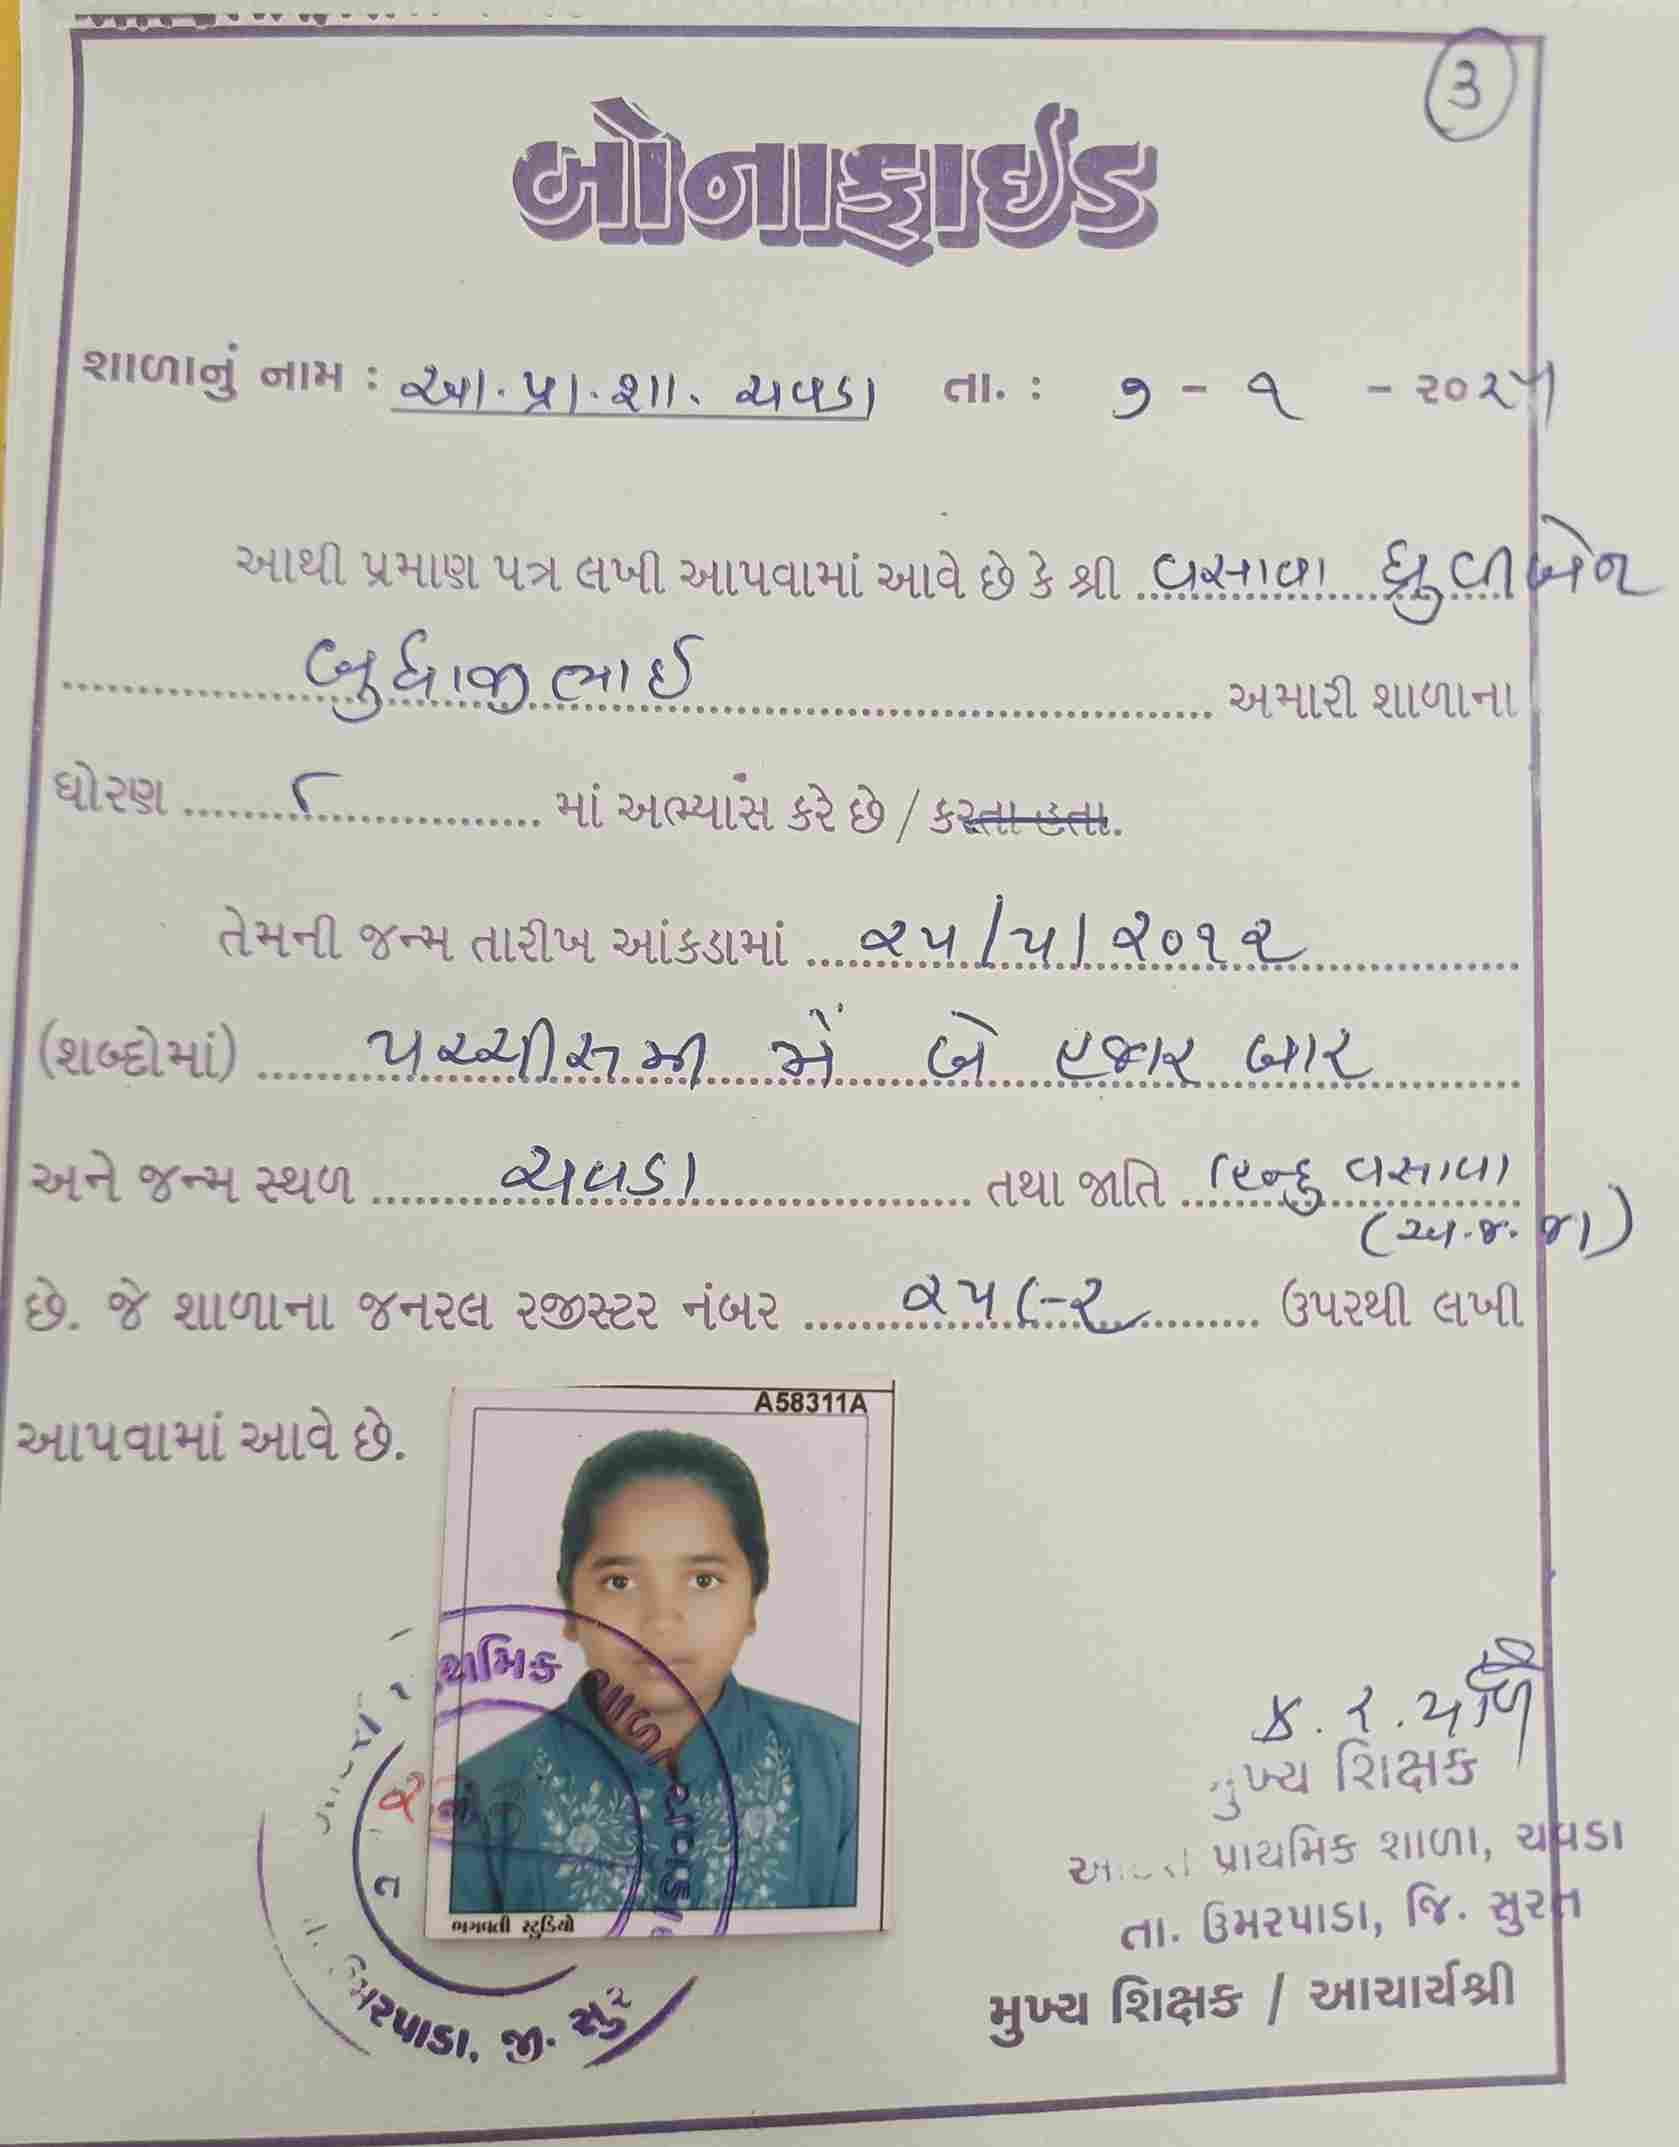 ૩
બોનાફાઈડ
શાળાનું નામ : આ.પ્રા.શા. ચવડા તા. : ૭ - ૧ - ૨૦૨૫
આથી પ્રમાણ પત્ર લખી આપવામાં આવે છે કે શ્રી વસાવા ધ્રુવીબેન
બુધાજીભાઈ અમારી શાળાના
ધોરણ ૮ માં અભ્યાસ કરે છે / કરતા હતા.
તેમની જન્મ તારીખ આંકડામાં ૨૫/૫/૨૦૧૨
(શબ્દોમાં) પચ્ચીસમી મેં બે હજાર બાર
અને જન્મ સ્થળ ચવડા તથા જાતિ હિન્દુ વસાવા
(અ.જ.જા)
છે. જે શાળાના જનરલ રજીસ્ટર નંબર ૨૫૮૨ ઉપરથી લખી
આપવામાં આવે છે.
A58311A
ભગવતી સ્ટુડિયો
ઉમરપાડા, જી. સુર
ક. ર.
મુખ્ય શિક્ષક
પ્રાથમિક શાળા, ચવડા
તા. ઉમરપાડા, જિ. સુરત
મુખ્ય શિક્ષક / આચાર્યશ્રી